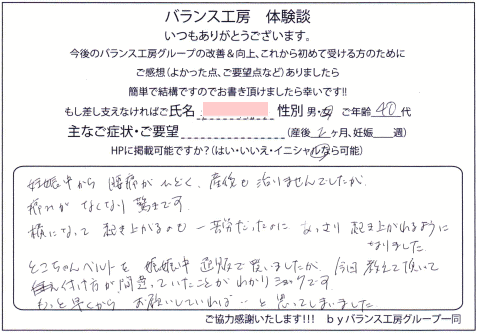 バランス工房　体験談
いつもありがとうございます。
今後のバランス工房グループの改善＆向上、これから初めて受ける方のために
ご感想（よかった点、ご要望点など）ありましたら
簡単で結構ですのでお書き頂けましたら幸いです!!
もし差し支えなければご氏名 性別 男・女 ご年齢 40 代
主なご症状・ご要望 （産後 2 ヶ月、妊娠　週）
HPに掲載可能ですか？（はい・いいえ・イニシャルなら可能）
妊娠中から 腰痛がひどく、産後も治りませんでしたが、
痛みがなくなり驚きです。
横になって 起き上がるのも 一苦労だったのに あっさり 起き上がれるように
なりました
とこちゃんベルトを 妊娠中 通販で買いましたが、今回 教えて頂いて
付け方が間違っていたことが わかり ショックです
もっと早くから お願いしていれば…と 思ってしまいました
ご協力感謝いたします!!!　ｂｙバランス工房グループ一同